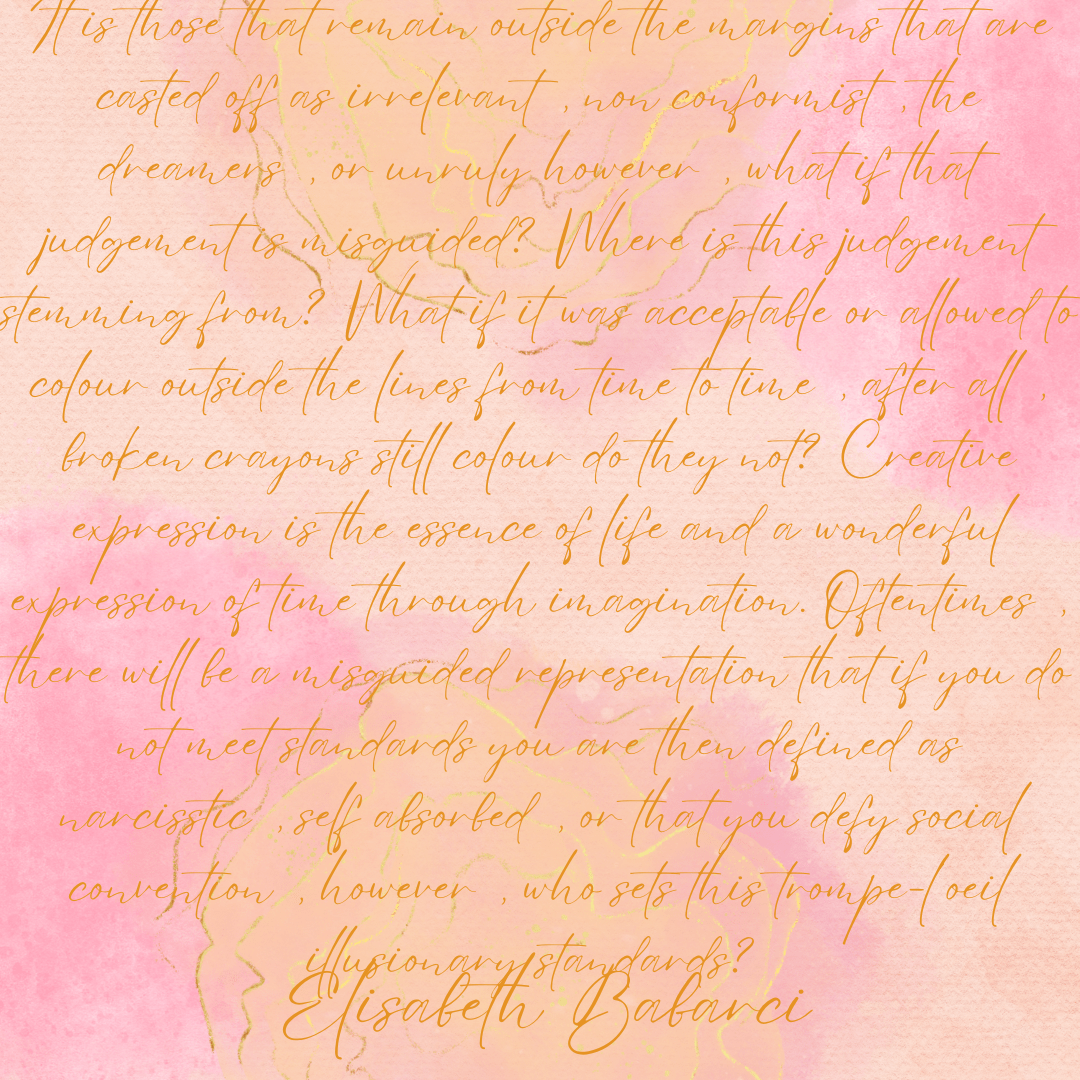 It is those that remain outside the margins that are
casted off as irrelevant , non conformist , the
dreamers , or unruly however , what if that
judgement is misguided? Where is this judgement
stemming from? What if it was acceptable or allowed to
colour outside the lines from time to time , after all ,
broken crayons still colour do they not? Creative
expression is the essence of life and a wonderful
expression of time through imagination. Oftentimes ,
there will be a misguided representation that if you do
not meet standards you are then defined as
narcisstic , self absorbed , or that you defy social
convention , however , who sets this trompe-l oeil
illusionary standards?
Elisabeth Babarci